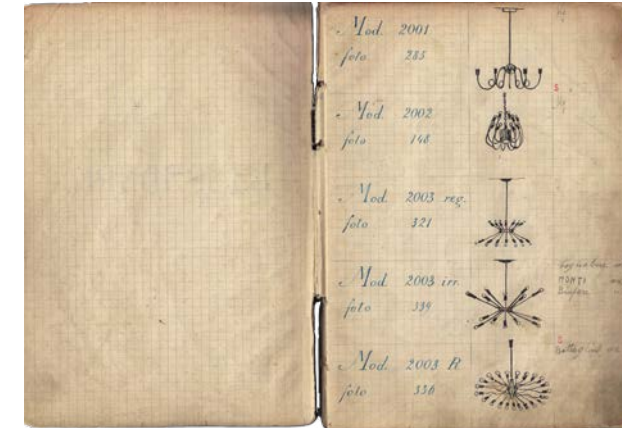 Mod. 2001
foto 285
Mod. 2002
foto 148
Mod. 2003 reg.
foto 321
Mod. 2003 irr.
foto 339
MONTI
Mod. 2003 R
foto 336